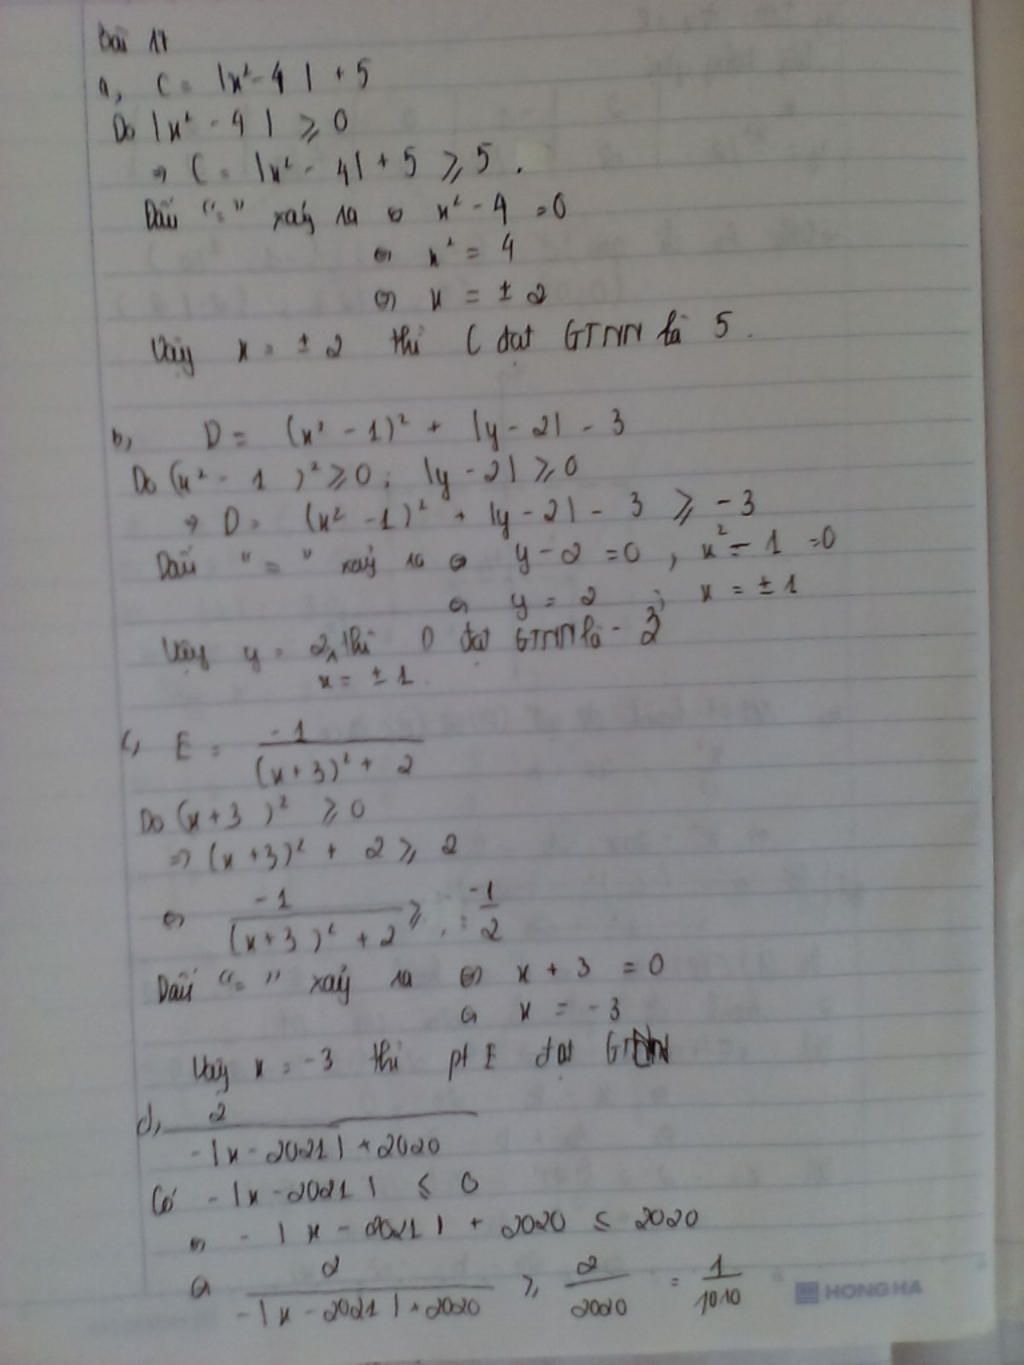 Bài 17
a, C = |x² - 4| + 5
Do |x² - 4| ⩾ 0
⇒ C = |x² - 4| + 5 ⩾ 5 .
Dấu "=" xảy ra ⇔ x² - 4 = 0
⇔ x² = 4
⇔ x = ± 2
Vậy x = ± 2 thì C đạt GTNN là 5 .
b, D = (x² - 1)² + |y - 2| - 3
Do (x² - 1)² ⩾ 0 ; |y - 2| ⩾ 0
⇒ D = (x² - 1)² + |y - 2| - 3 ⩾ - 3
Dấu "=" xảy ra ⇔ y - 2 = 0 , x² - 1 = 0
⇔ y = 2 ; x = ± 1
Vậy y = 2, thì D đạt GTNN là - 3
x = ± 1
c, E = -1 / (x+3)² + 2
Do (x+3)² ⩾ 0
⇒ (x+3)² + 2 ⩾ 2
⇔ -1 / (x+3)² + 2 ⩾ -1 / 2
Dấu "=" xảy ra ⇔ x + 3 = 0
⇔ x = - 3
Vậy x = -3 thì pt E đạt
d, 2 / -|x - 2021| + 2020
Có -|x - 2021| ≤ 0
⇔ - |x - 2021| + 2020 ≤ 2020
⇔ 2 / -|x - 2021| + 2020 ⩾ 2 / 2020 = 1 / 1010
HONG HA